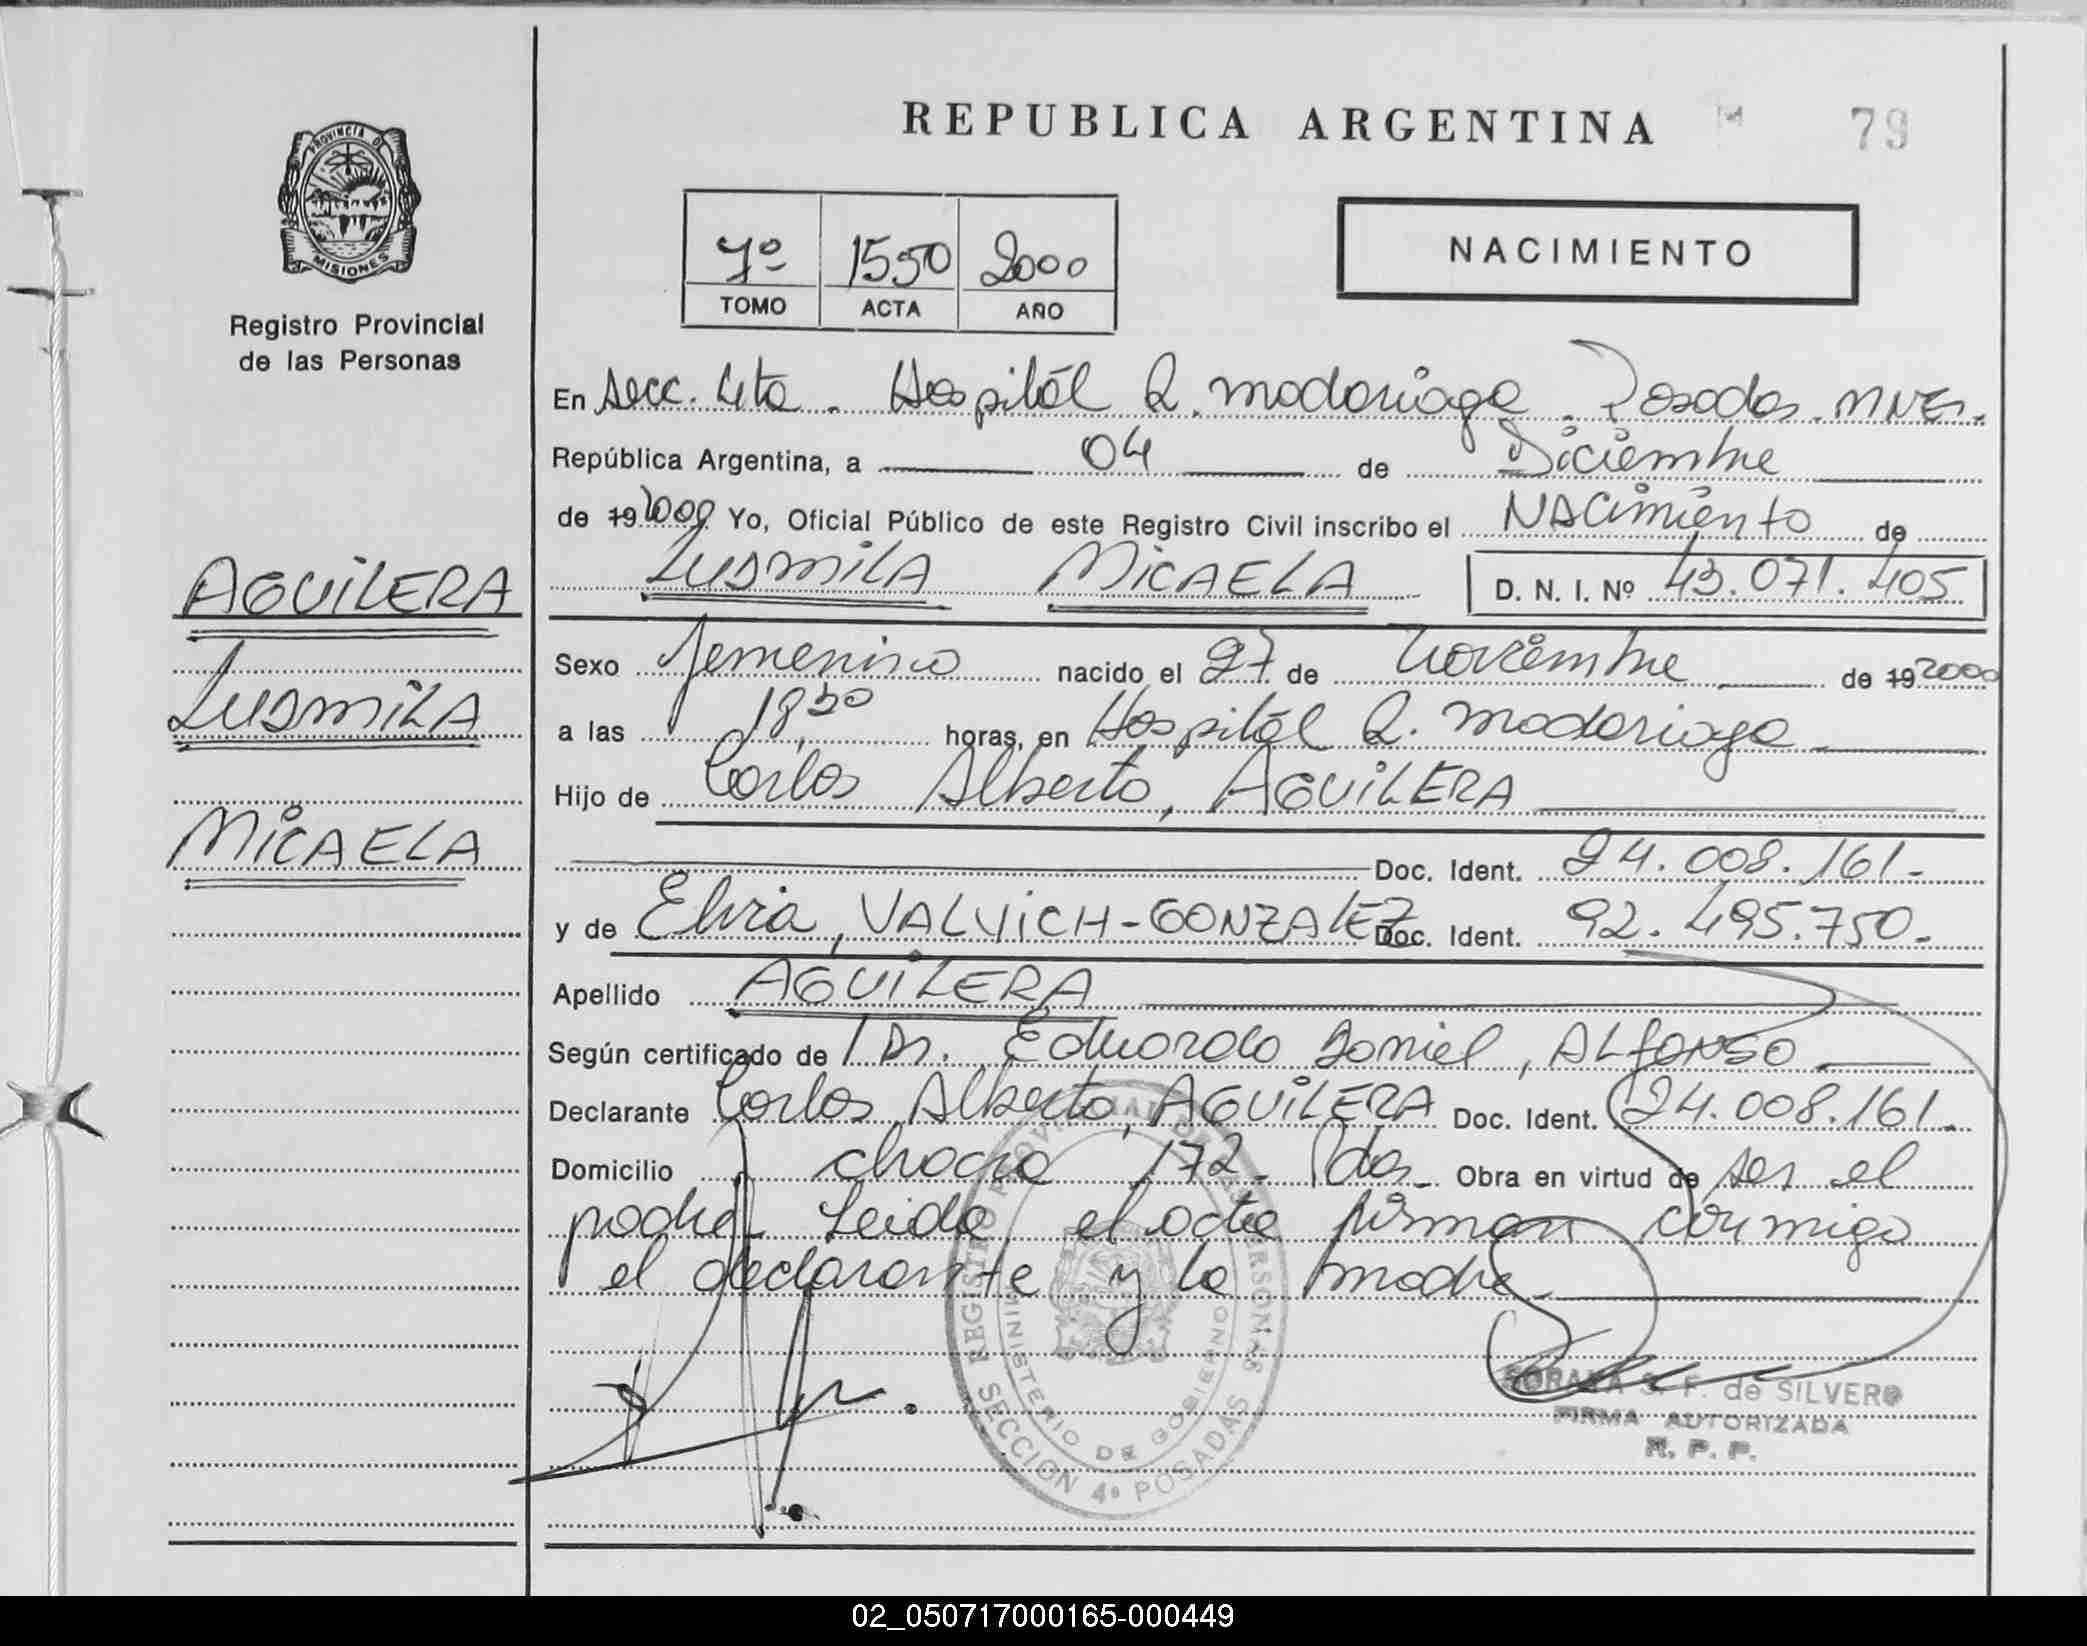 REPUBLICA ARGENTINA
79
PROVINCIA D
MISIONES
Registro Provincial
de las Personas
7º 1550 2000
TOMO ACTA AÑO
NACIMIENTO
En Secc. 4ta. Hospitál R. Madariaga. Posadas. MNES.
República Argentina, a 04 de Diciembre
de 19 2000 Yo, Oficial Público de este Registro Civil inscribo el NACimiento de
LUDMiLA MiCAELA D. N. I. Nº 43.071.405
AGUiLERA
LUDMiLA
MiCAELA
Sexo femenino nacido el 27 de Noviembre de 19 2000
a las 18,30 horas, en Hospitál R. Madariaga
Hijo de Carlos Alberto, AGUiLERA
Doc. Ident. 24.008.161.-
y de Elvia, VALViCH-GONZALEZ Doc. Ident. 92.495.750.-
Apellido AGUiLERA
Según certificado de Dr. Eduardo Daniel, ALfONSO
Declarante Carlos Alberto, AGUiLERA Doc. Ident. 24.008.161.-
Domicilio chacra 172- Pdas.- Obra en virtud de ser el
padre. Leida el acta firman conmigo
el declarante y la madre.-
REGISTRO PROVINCIAL DE LAS PERSONAS
MINISTERIO DE GOBIERNO
SECCION 4º POSADAS
SORAYA S. F. de SILVERO
FIRMA AUTORIZADA
R. P. P.
02_050717000165-000449